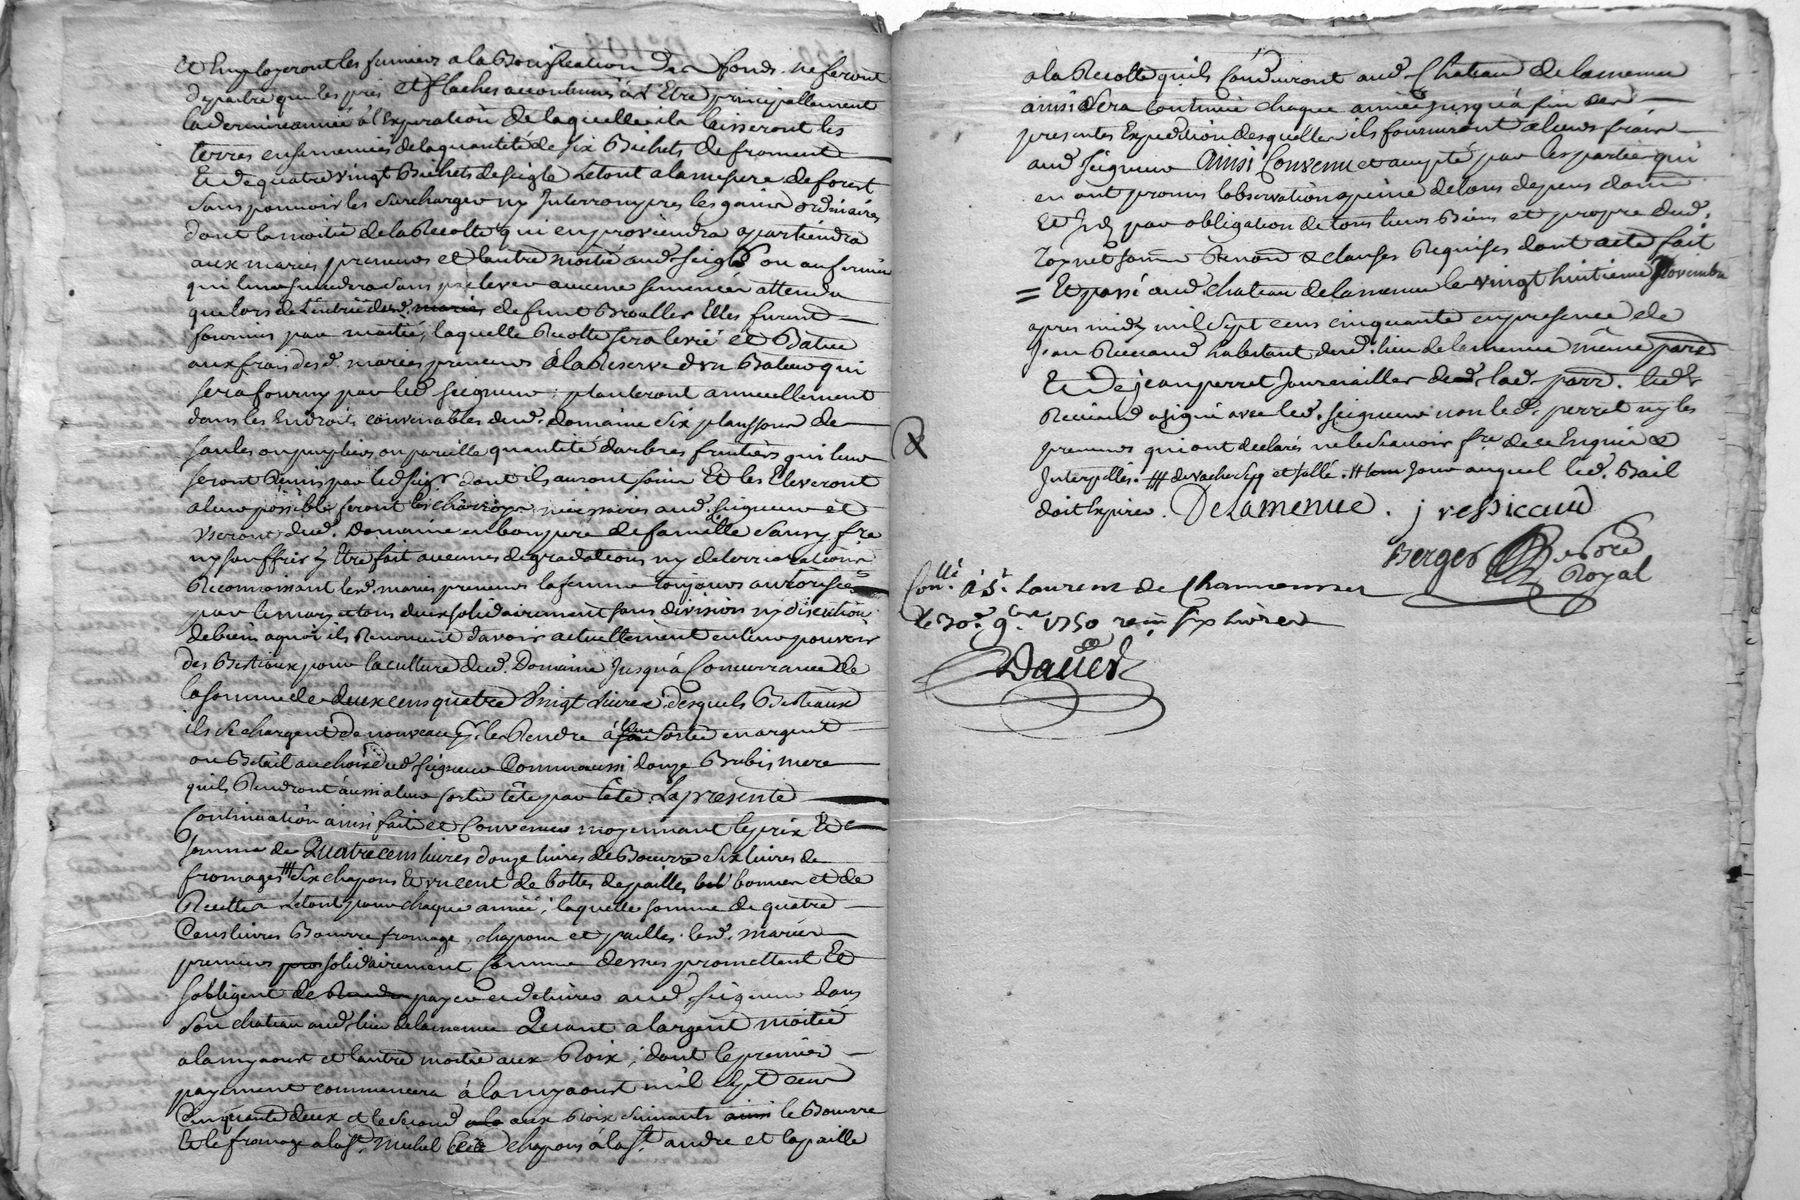 et Employeront les fumiers a la Bonification des fonds. ne feront
depaitre que les prés et flaches accoutumés à l'Etre principallement
la derniere année à l'Expiration de laquelle ils laisseront les
terres ensemencées de la quantité de six Bichets de froment
Et de quatre vingt Bichets de seigle Letout a la mesure de forest
sans pouvoir les surcharger ny Interrompre les gains ordinaires
dont la moitié de la Recolte qui en proviendra apartiendra
aux mariés preneurs et lautre moitié aud. seigr ou au fermier
qui leur succedera sans prelever aucune semence attendu
que lors de l'entrée dud. defunt Brosslles Elles furent
fournies par moitié, laquelle Recolte sera levée et Batue
aux frais desd. mariés preneurs à la Reserve d'un Bateur qui
sera fourny par led. seigneur : planteront annuellement
dans les Endroits convenables dud. domaine six planssons de
saules ou peupliers ou pareille quantité d'arbres fruitiers qui leur
seront Remis par led. seigr dont ils auront soin Et les Eleveront
a leur possible feront les charrois necessaires aud. seigneur et
useront dud. Domaine en bon pere de famille sans y fre
ny souffrir y Etre fait aucunes degradations ny deterriorations
Reconnoissant lesd. mariés preneurs la femme toujours authorisée
par le mary et tous deux solidairement sans division ny discution
de biens a quoi ils Renoncent d'avoir actuellement en leur pouvoir
des Bestiaux pour la culture dud. Domaine jusqu'à Concurrance de
la somme de deux cens quatre vingt Livres desquels Bestiaux
ils se chargent de nouveau pr. les Rendre à leur sortie en argent
ou Bétail au choix dud. seigneur Comme aussi douze Brebis mere
qu'ils Rendront aussi a leur sortie tête par tête. La presente
Continuation ainsi faite et Convenue moyennant le prix Et
somme de Quatre cens livres douze livres de Beurre six livres de
fromages # six chapons Et un cent de bottes de pailles bonnes et de
Recette Letout pour chaque année ; laquelle somme de quatre
Cens livres Beurre fromage, chapons et pailles lesd. mariés
preneurs solidairement Comme dessus promettent Et
s'obligent de payer et delivrer aud. seigneur dans
son chateau aud. lieu de lamenue Quant a largent moitié
a la myaoust et lautre moitié aux Roix ; dont le premier
payement commencera à la myaoust mil sept cens
Cinquante deux et le second aux Roix suivants le Beurre
Et le fromage a la St. Michel les chapons à la St. andré et la paille
a la Recolte qu'ils Conduiront aud. Chateau de lamenue
ainsi sera continué chaque année jusqu'à fin des
presentes Expedition desquelles ils fourniront a leurs frais
aud. seigneur Ainsi Convenu et accepté par les parties qui
en ont promis l'observation a peine de tous depens dom.
Et Jnt. par obligation de tous leurs Biens et propre dud.
Renon. & clauses Requises dont acte fait
= Et passé aud. chateau de lamenue le vingt huitieme Novembre
apres midy mil sept cens cinquante en presence de
Jean Ressicaud habitant dud. lieu de lamenue même parr.
Et De jean perret Journaillier de lad. parr. led.
Ressicaud a signé avec led. seigneur non led. perret ny les
preneurs qui ont declarés ne le sçavoir fre. de ce Enquis &
Interpellés. # de vache sec et sallé. # jour auquel led. Bail
doit Expirer. De Lamenue. j ressicaud
Berger Nore Royal
Conllé. à St. Laurent de Chamousset
le 30e. 9bre 1750 reçu six livres
Dauer